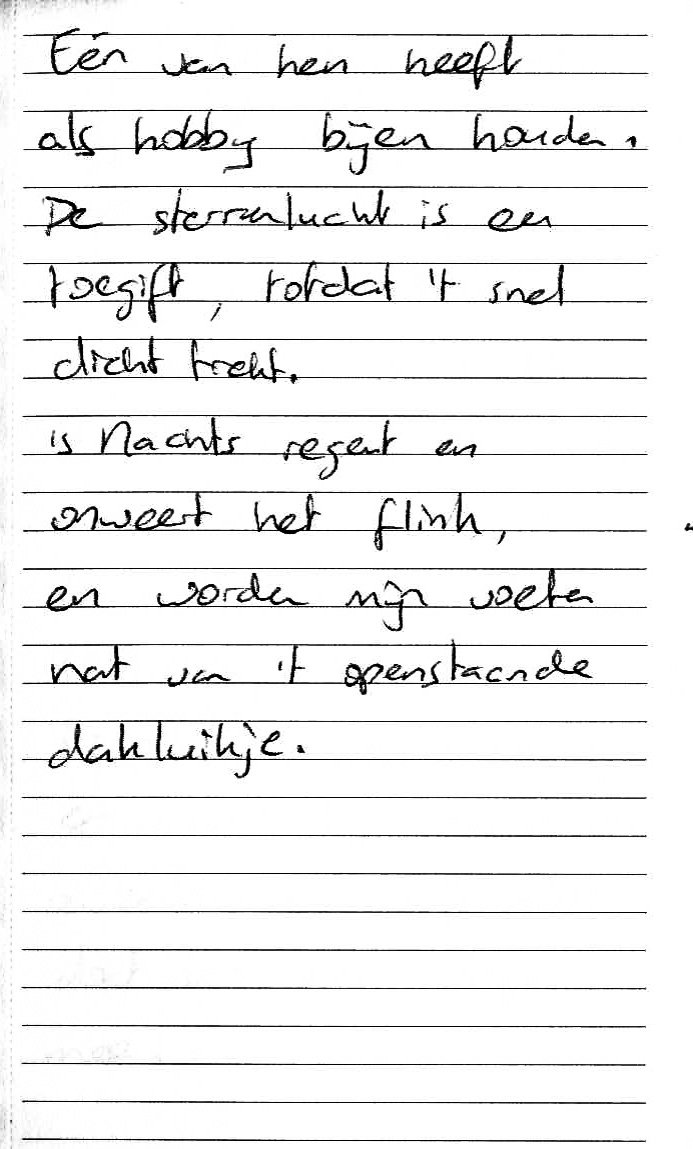 Eén van hen heeft
als hobby bijen houden.
De sterrenlucht is een
toegift, totdat 't snel
dicht trekt.
's Nachts regent en
onweert het flink,
en worden mijn voeten
nat van 't openstaande
dakluikje.